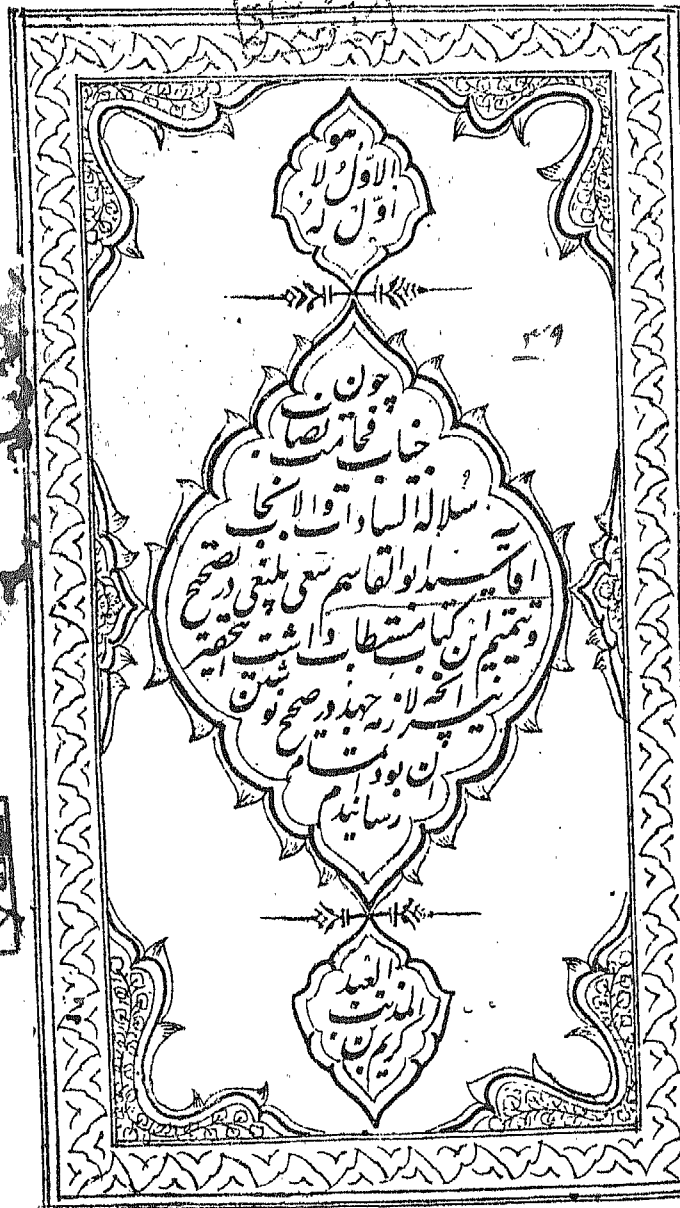 هو
الاوّلُ لا
اوّلَ له
چون
جناب فخامت نصاب
سلالة السادات والانجاب
اقا سید ابوالقاسم سعی بلیغی در تصحیح
و تتمیم این کتاب مستطاب داشت احقر
نیز آنچه لازمه جهد در صحیح نوشتن
آن بود اتمام
رسانیدم
العبد
المذنب
کریم بن